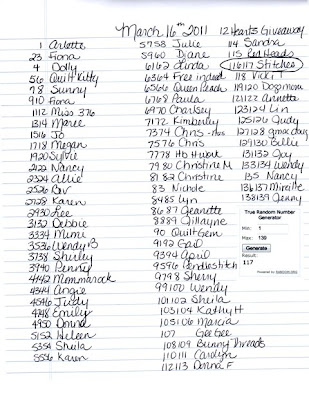 March 16th 2011 12 Hearts Giveaway
1 Arlette
23 Fiona
4 Dolly
56 Quilt Kitty
78 Sunny
910 Fiona
1112 Miss 376
1314 Maree
1516 Jo
1718 Megan
1920 Sylvie
2122 Nancy
2324 Allie
2526 Car
2728 Karen
2930 Lee
3132 Debbie
3334 Mumi
3536 Wendy B
3738 Shirley
3940 Penny
4142 Mommarock
4344 Angie
4546 Judy
4748 Emily
4950 Donna
5152 Heleen
5354 Sheila
5556 Karen
5758 Julie
5960 Diane
6162 Linda
6364 Free indeed
6566 Queen Peach
6768 Paula
6970 Charkey
7172 Kimberley
7374 Chris
7576 Chris
7778 Hb Hwork
7980 Christine M
8182 Christine
83 Nichole
8485 Lyn
8687 Jeanette
8889 Jillayne
90 Quilt Gem
9192 Gail
9394 April
9596 Candlestitch
9798 Sherry
99100 Wendy
101102 Sheila
103104 Kathy H
105106 Marcia
107 GeeGee
108109 Bunny Threads
110111 Carolyn
112113 Donna F
114 Sandra
115 Red Heads
116117 Stitches
118 Vicki T
119120 Dozimom
121122 Annette
123124 Lin
125126 Judy
127128
129130 Billie
131132 Joy
133134 Wendy
135 Nancy
136137 Mireille
138139 Jenny
True Random Number Generator
Min: 1
Max: 139
Generate
Result:
117
Powered by RANDOM.ORG